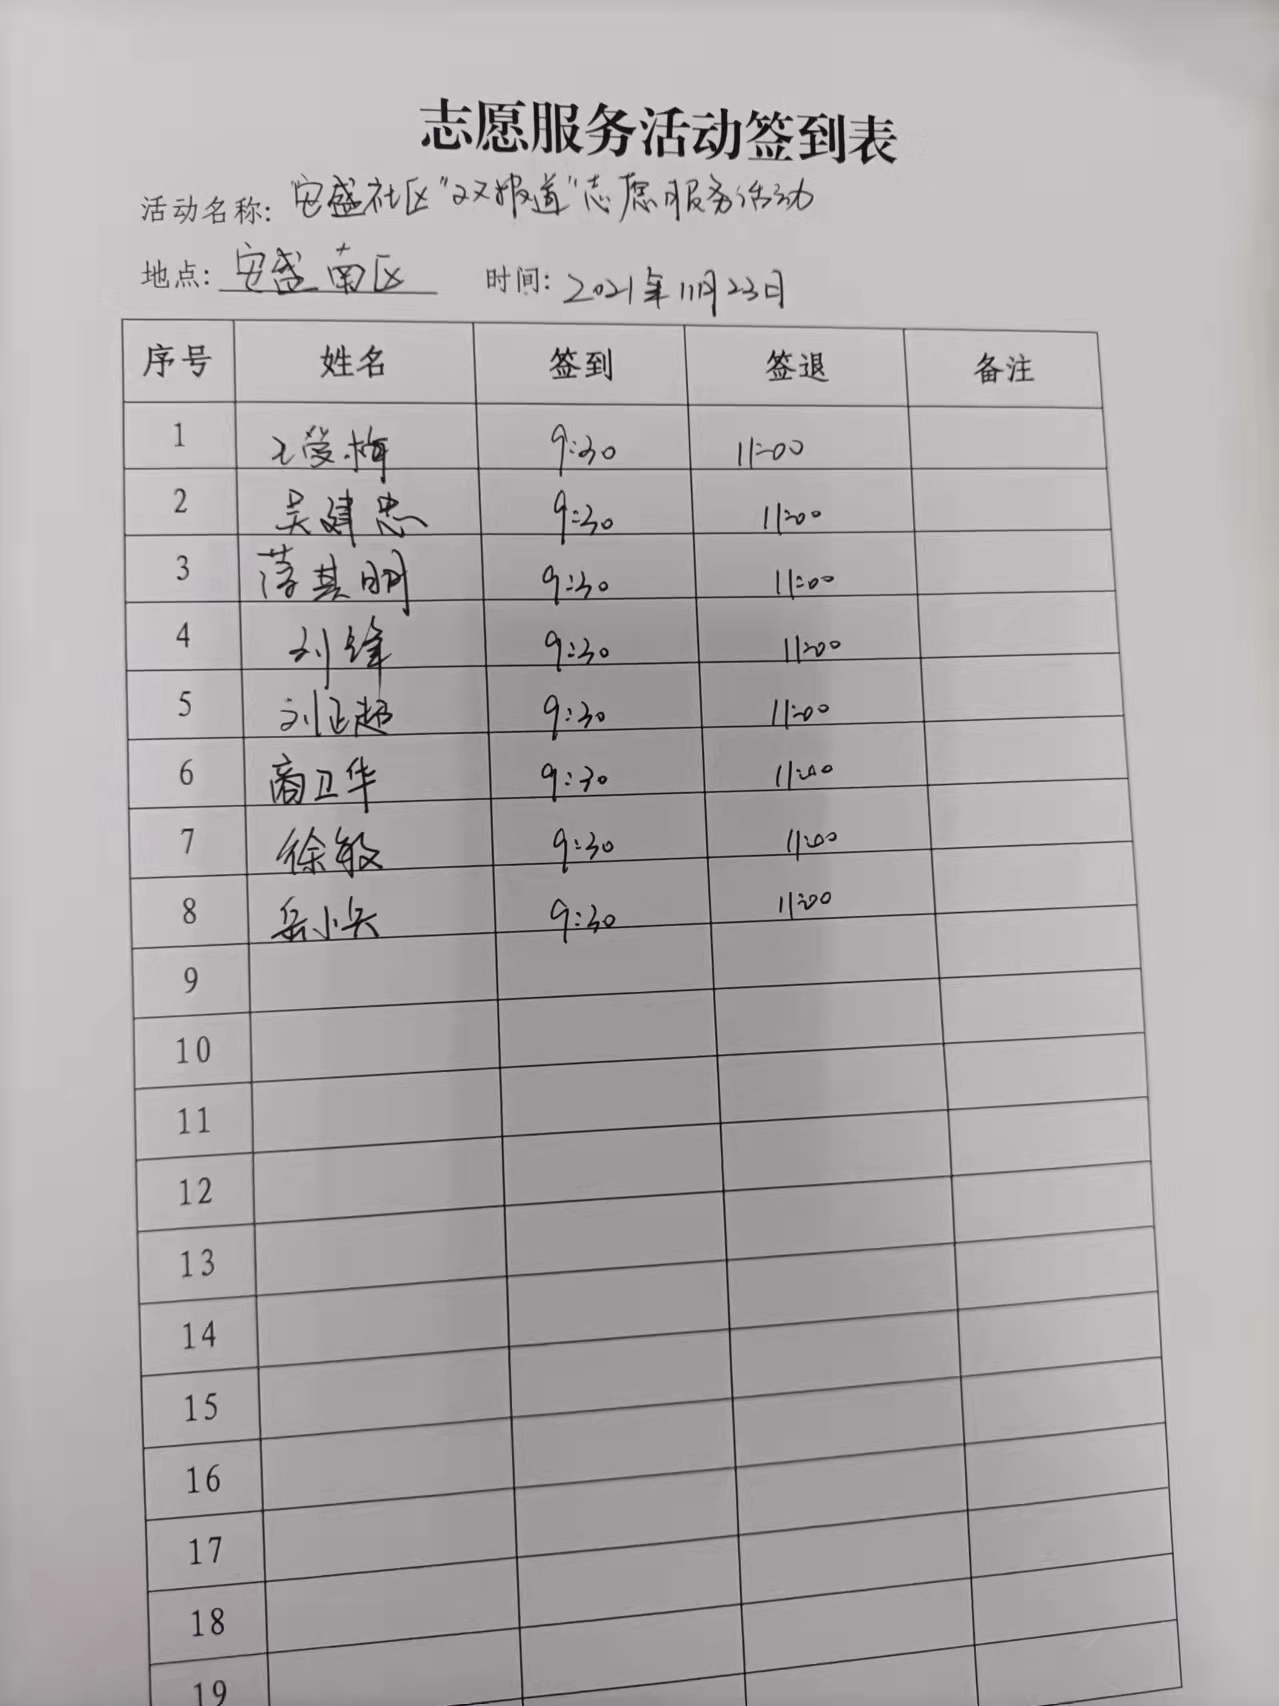 志愿服务活动签到表
活动名称: 安盛社区“双报道”志愿服务活动
地点: 安盛南区 时间: 2021年11月23日
序号 姓名 签到 签退 备注
1 王爱梅 9:30 11:00
2 吴建忠 9:30 11:00
3 蒋其明 9:30 11:00
4 刘锋 9:30 11:00
5 刘正超 9:30 11:00
6 商卫华 9:30 11:00
7 徐敏 9:30 11:00
8 岳小 9:30 11:00
9
10
11
12
13
14
15
16
17
18
19